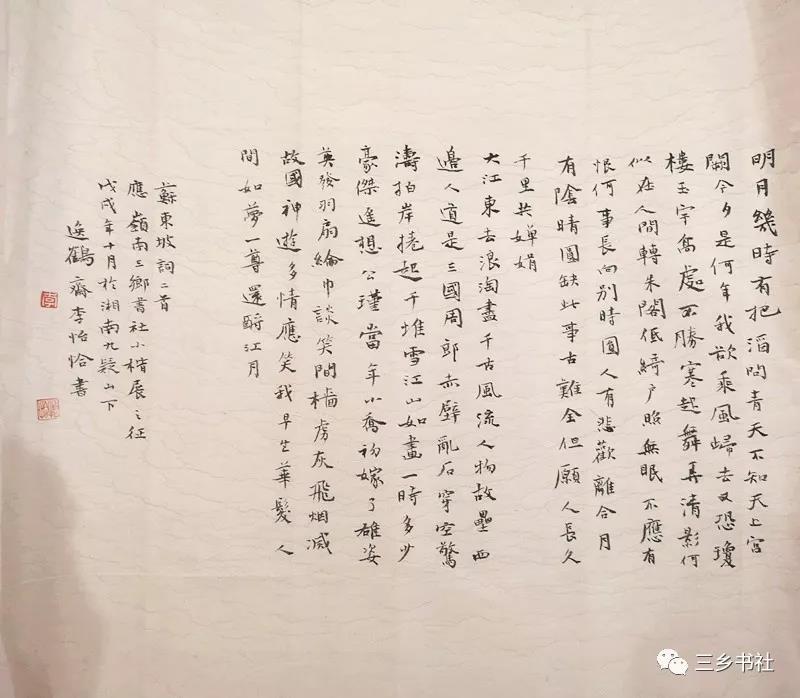 明月幾時有把酒問青天不知天上宮
闕今夕是何年我欲乘風歸去又恐瓊
樓玉宇高處不勝寒起舞弄清影何
似在人間轉朱閣低綺户照無眠不應有
恨何事長向別時圓人有悲歡離合月
有陰晴圓缺此事古難全但願人長久
千里共嬋娟
大江東去浪淘盡千古風流人物故壘西
邊人道是三國周郎赤壁亂石穿空驚
濤拍岸捲起千堆雪江山如畫一時多少
豪傑遙想公瑾當年小喬初嫁了雄姿
英發羽扇綸巾談笑間檣虜灰飛烟滅
故國神遊多情應笑我早生華髮人
間如夢一尊還酹江月
蘇東坡詞二首
應嶺南三鄉書社小楷展之征
戊戌年十月於湘南九疑山下
逸鶴齋李怡恰書
三乡书社